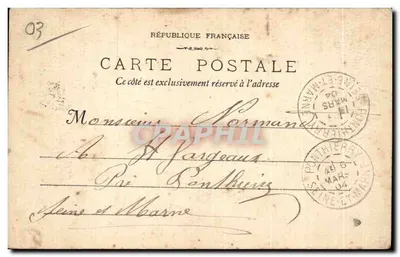 03
RÉPUBLIQUE FRANÇAISE
CARTE POSTALE
Ce côté est exclusivement réservé à l'adresse
Monsieur Normand
A St Fargeau
Par Ponthierry
Seine et Marne
PONTHIERRY
MARS
04
SEINE-ET-MARNE
PONTHIERRY
MARS
04
SEINE-ET-MARNE
CPAPHIL